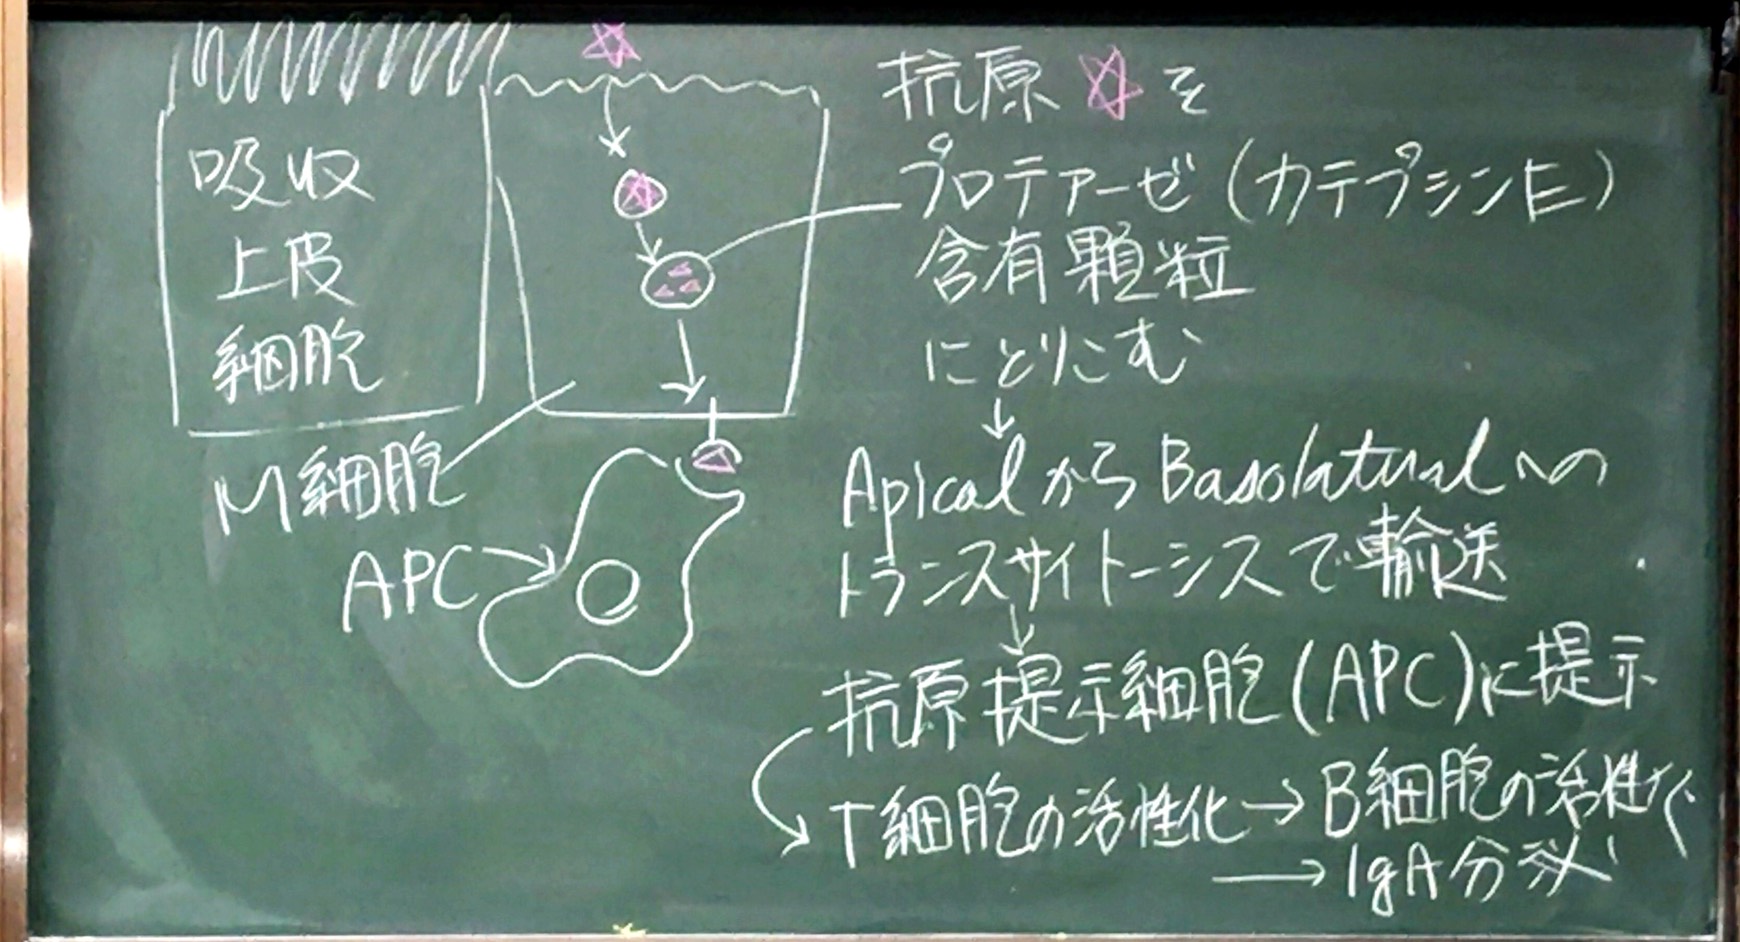 吸収
上皮
細胞
M細胞
APC
抗原☆を
プロテアーゼ(カテプシンE)
含有顆粒
にとりこむ
↓
ApicalからBasolaturalへの
トランスサイトーシスで輸送
↓
抗原提示細胞(APC)に提示
T細胞の活性化→B細胞の活性化
→IgA分泌